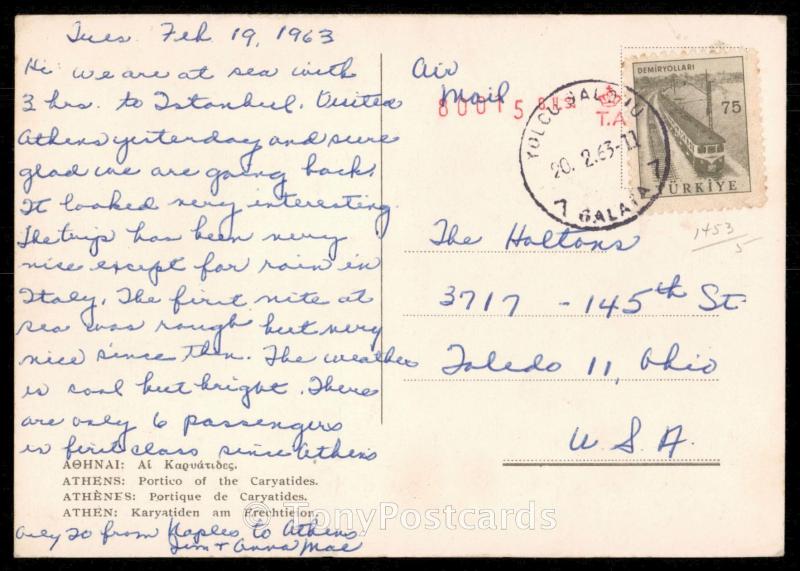 Tues. Feb 19, 1963
Hi we are at sea with
3 hrs. to Istanbul. Visited
Athens yesterday and sure
glad we are going back.
It looked very interesting.
The trip has been very
nice except for rain in
Italy. The first nite at
sea was rough but very
nice since then. The weather
is cool but bright. There
are only 6 passengers
in first class since Athens
ΑΘΗΝΑΙ: Αἱ Καρυάτιδες.
ATHENS: Portico of the Caryatides.
ATHÈNES: Portique de Caryatides.
ATHEN: Karyatiden am Erechtieion.
only 20 from Naples to Athens
Jim + Anna Mae
Air
Mail
80015
T.A
YOLCU SALONU
20. 2.63-11
7 GALATA 7
DEMİRYOLLARI
75
TÜRKİYE
1453
5
The Haltons
3717 - 145th St.
Toledo 11, Ohio
U.S.A.
© TonyPostcards